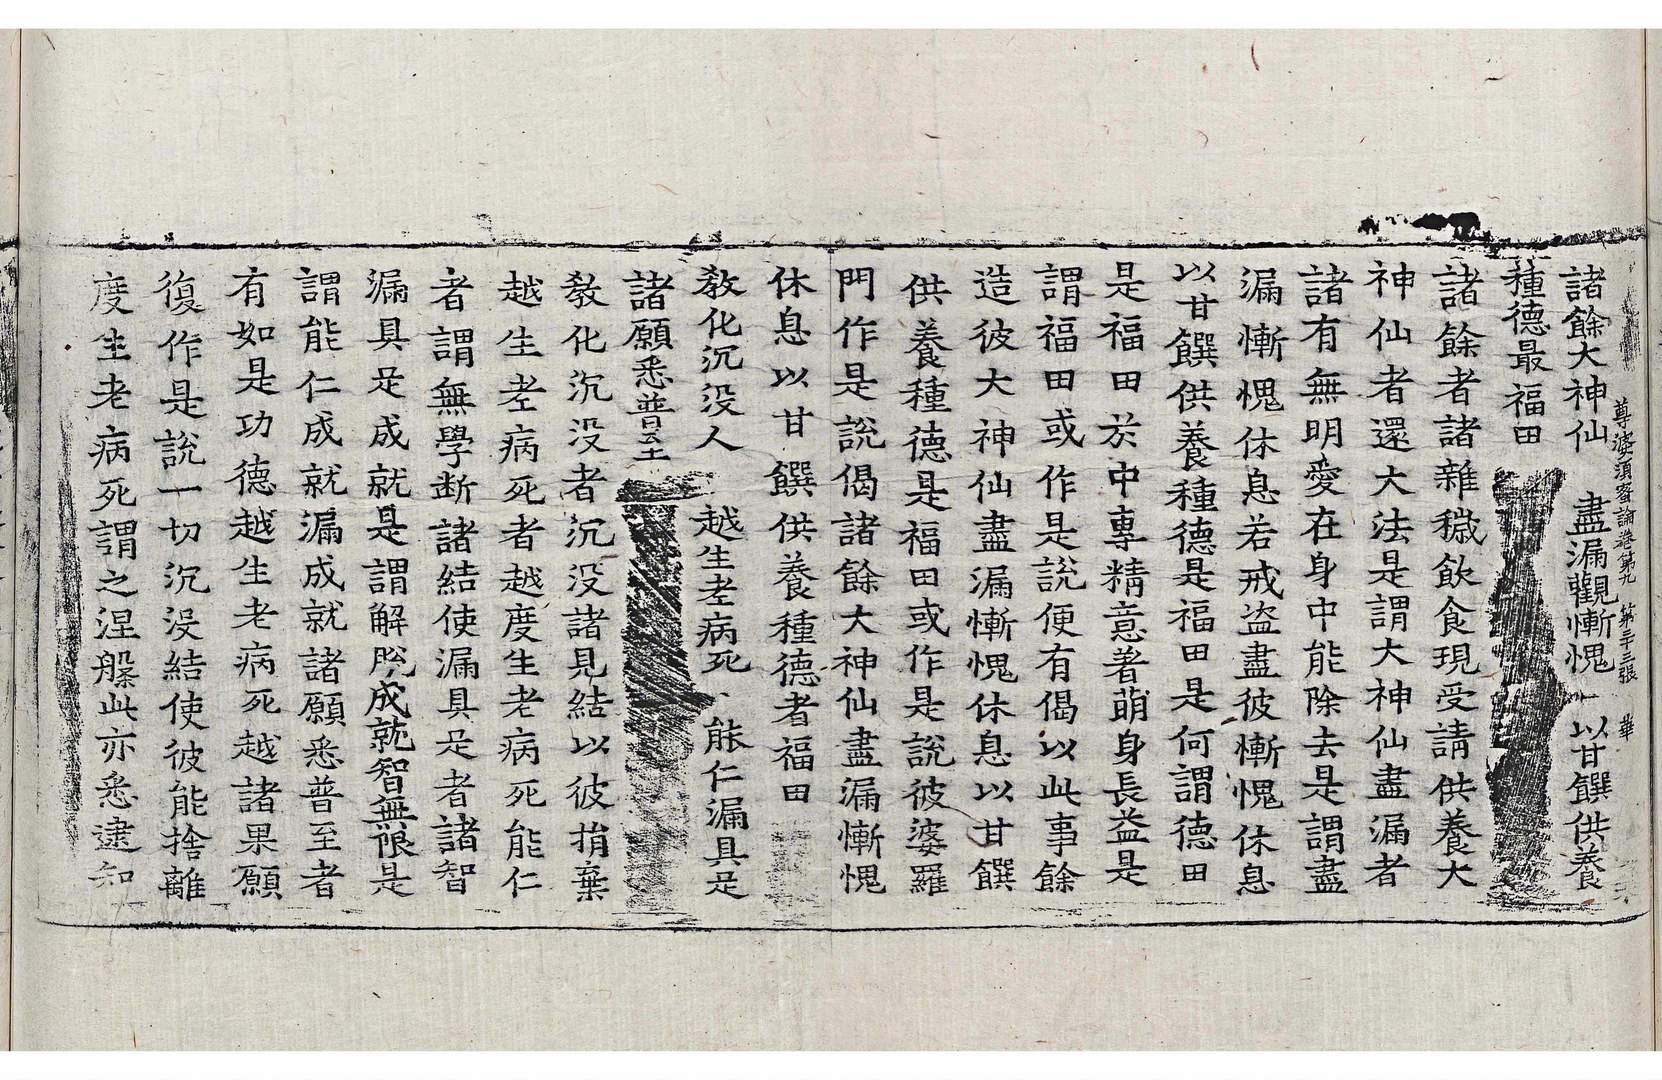 尊婆須蜜論卷第九 第三十三張 華
諸餘大神仙 盡漏觀慚愧 以甘饌供養
種德最福田
諸餘者諸雜穢飲食現受請供養大
神仙者還大法是謂大神仙盡漏者
諸有無明愛在身中能除去是謂盡
漏慚愧休息若戒盜盡彼慚愧休息
以甘饌供養種德是福田是何謂德田
是福田於中專精意著萌身長益是
謂福田或作是說便有偈以此事餘
造彼大神仙盡漏慚愧休息以甘饌
供養種德是福田或作是說彼婆羅
門作是說偈諸餘大神仙盡漏慚愧
休息以甘饌供養種德者福田
敎化沉没人 越生老病死 能仁漏具足
諸願悉普至
敎化沉没者沉没諸見結以彼捐棄
越生老病死者越度生老病死能仁
者謂無學斷諸結使漏具足者諸智
漏具足成就是謂解脫成就智無限是
謂能仁成就漏成就諸願悉普至者
有如是功德越生老病死越諸果願
復作是說一切沉没結使彼能捨離
度生老病死謂之涅槃此亦悉逮知